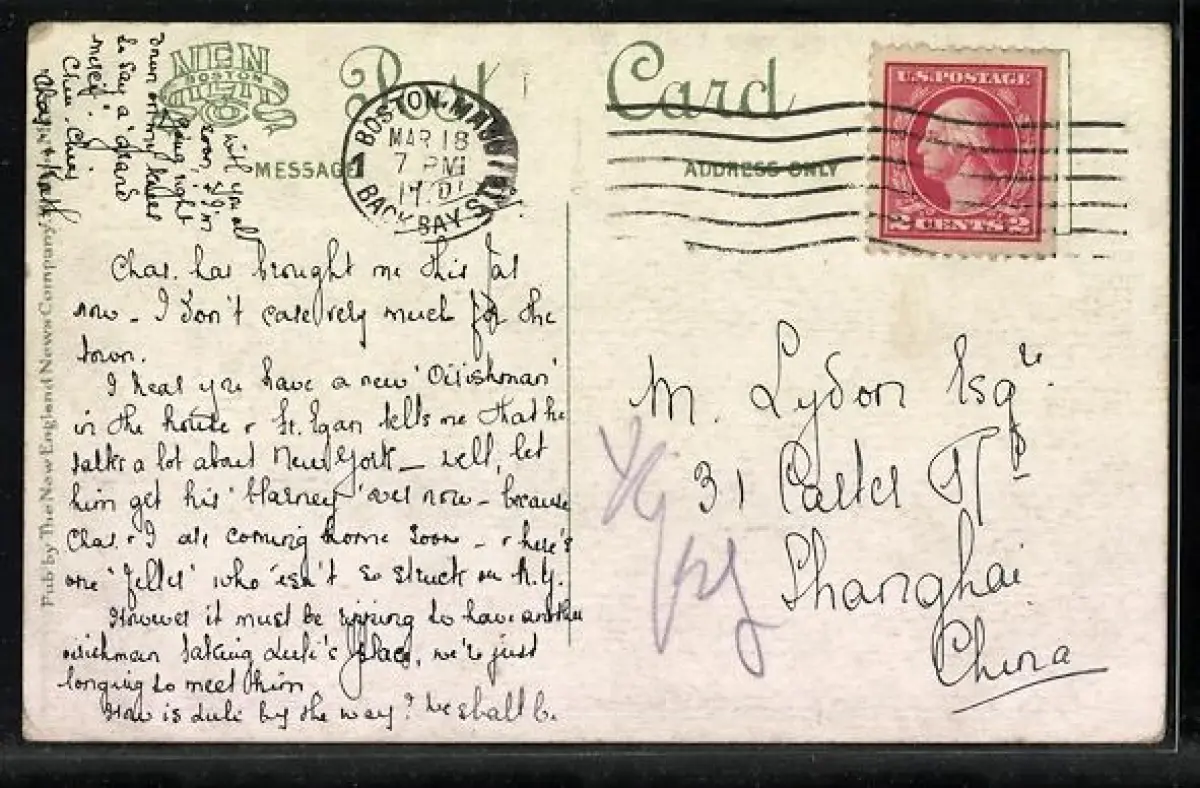 Post Card
NEN
BOSTON
MESSAGE
ADDRESS ONLY
BOSTON, MA
MAR 18
7 PM
BACK BAY ST
1
U.S. POSTAGE
2 CENTS 2
Pub by The New England News Company
Chas. has brought me this far
now - I don't care very much for the
town.
I hear you have a new 'Oirishman'
in the house & Fr. Egan tells me that he
talks a lot about New York - Well, let
him get his 'blarney' over now - because
Chas. & I are coming home soon - & here's
one 'feller' who 'isn't' so struck on N.Y.
However it must be ripping to have another
oirishman taking place, we're just
longing to meet him
How is by the way? We shall be
with you all
soon, & I'm
going right
down on my knees
to say a 'grand
mercy'.
Chin Chin
M. Lydon Esqre.
31 Carter Rd
Shanghai
China